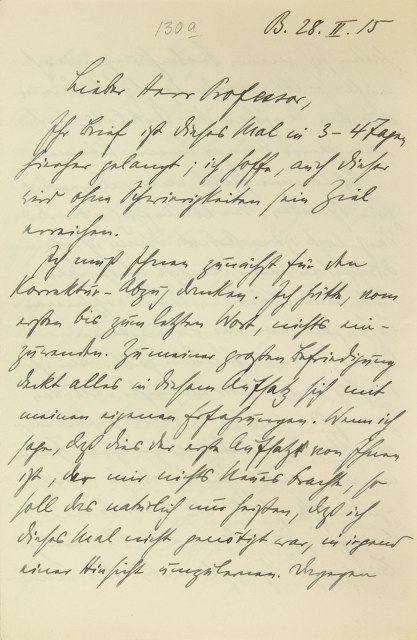 130a
B. 28. II. 15
Lieber Herr Professor,
Ihr Brief ist dieses Mal in 3-4 Tagen
hierher gelangt; ich hoffe, auch dieser
wird ohne Schwierigkeiten sein Ziel
erreichen.
Ich muß Ihnen zunächst für den
Korrektur-Abzug danken. Ich hätte, vom
ersten bis zum letzten Wort, nichts ein-
zuwenden. Zu meiner großen Befriedigung
deckt alles in diesem Aufsatz sich mit
meinen eigenen Erfahrungen. Wenn ich
sage, daß dies der erste Aufsatz von Ihnen
ist, der mir nichts Neues brachte, so
soll das natürlich nur heißen, daß ich
dieses Mal nicht genötigt war, in irgend
einer Hinsicht umzulernen. Dagegen